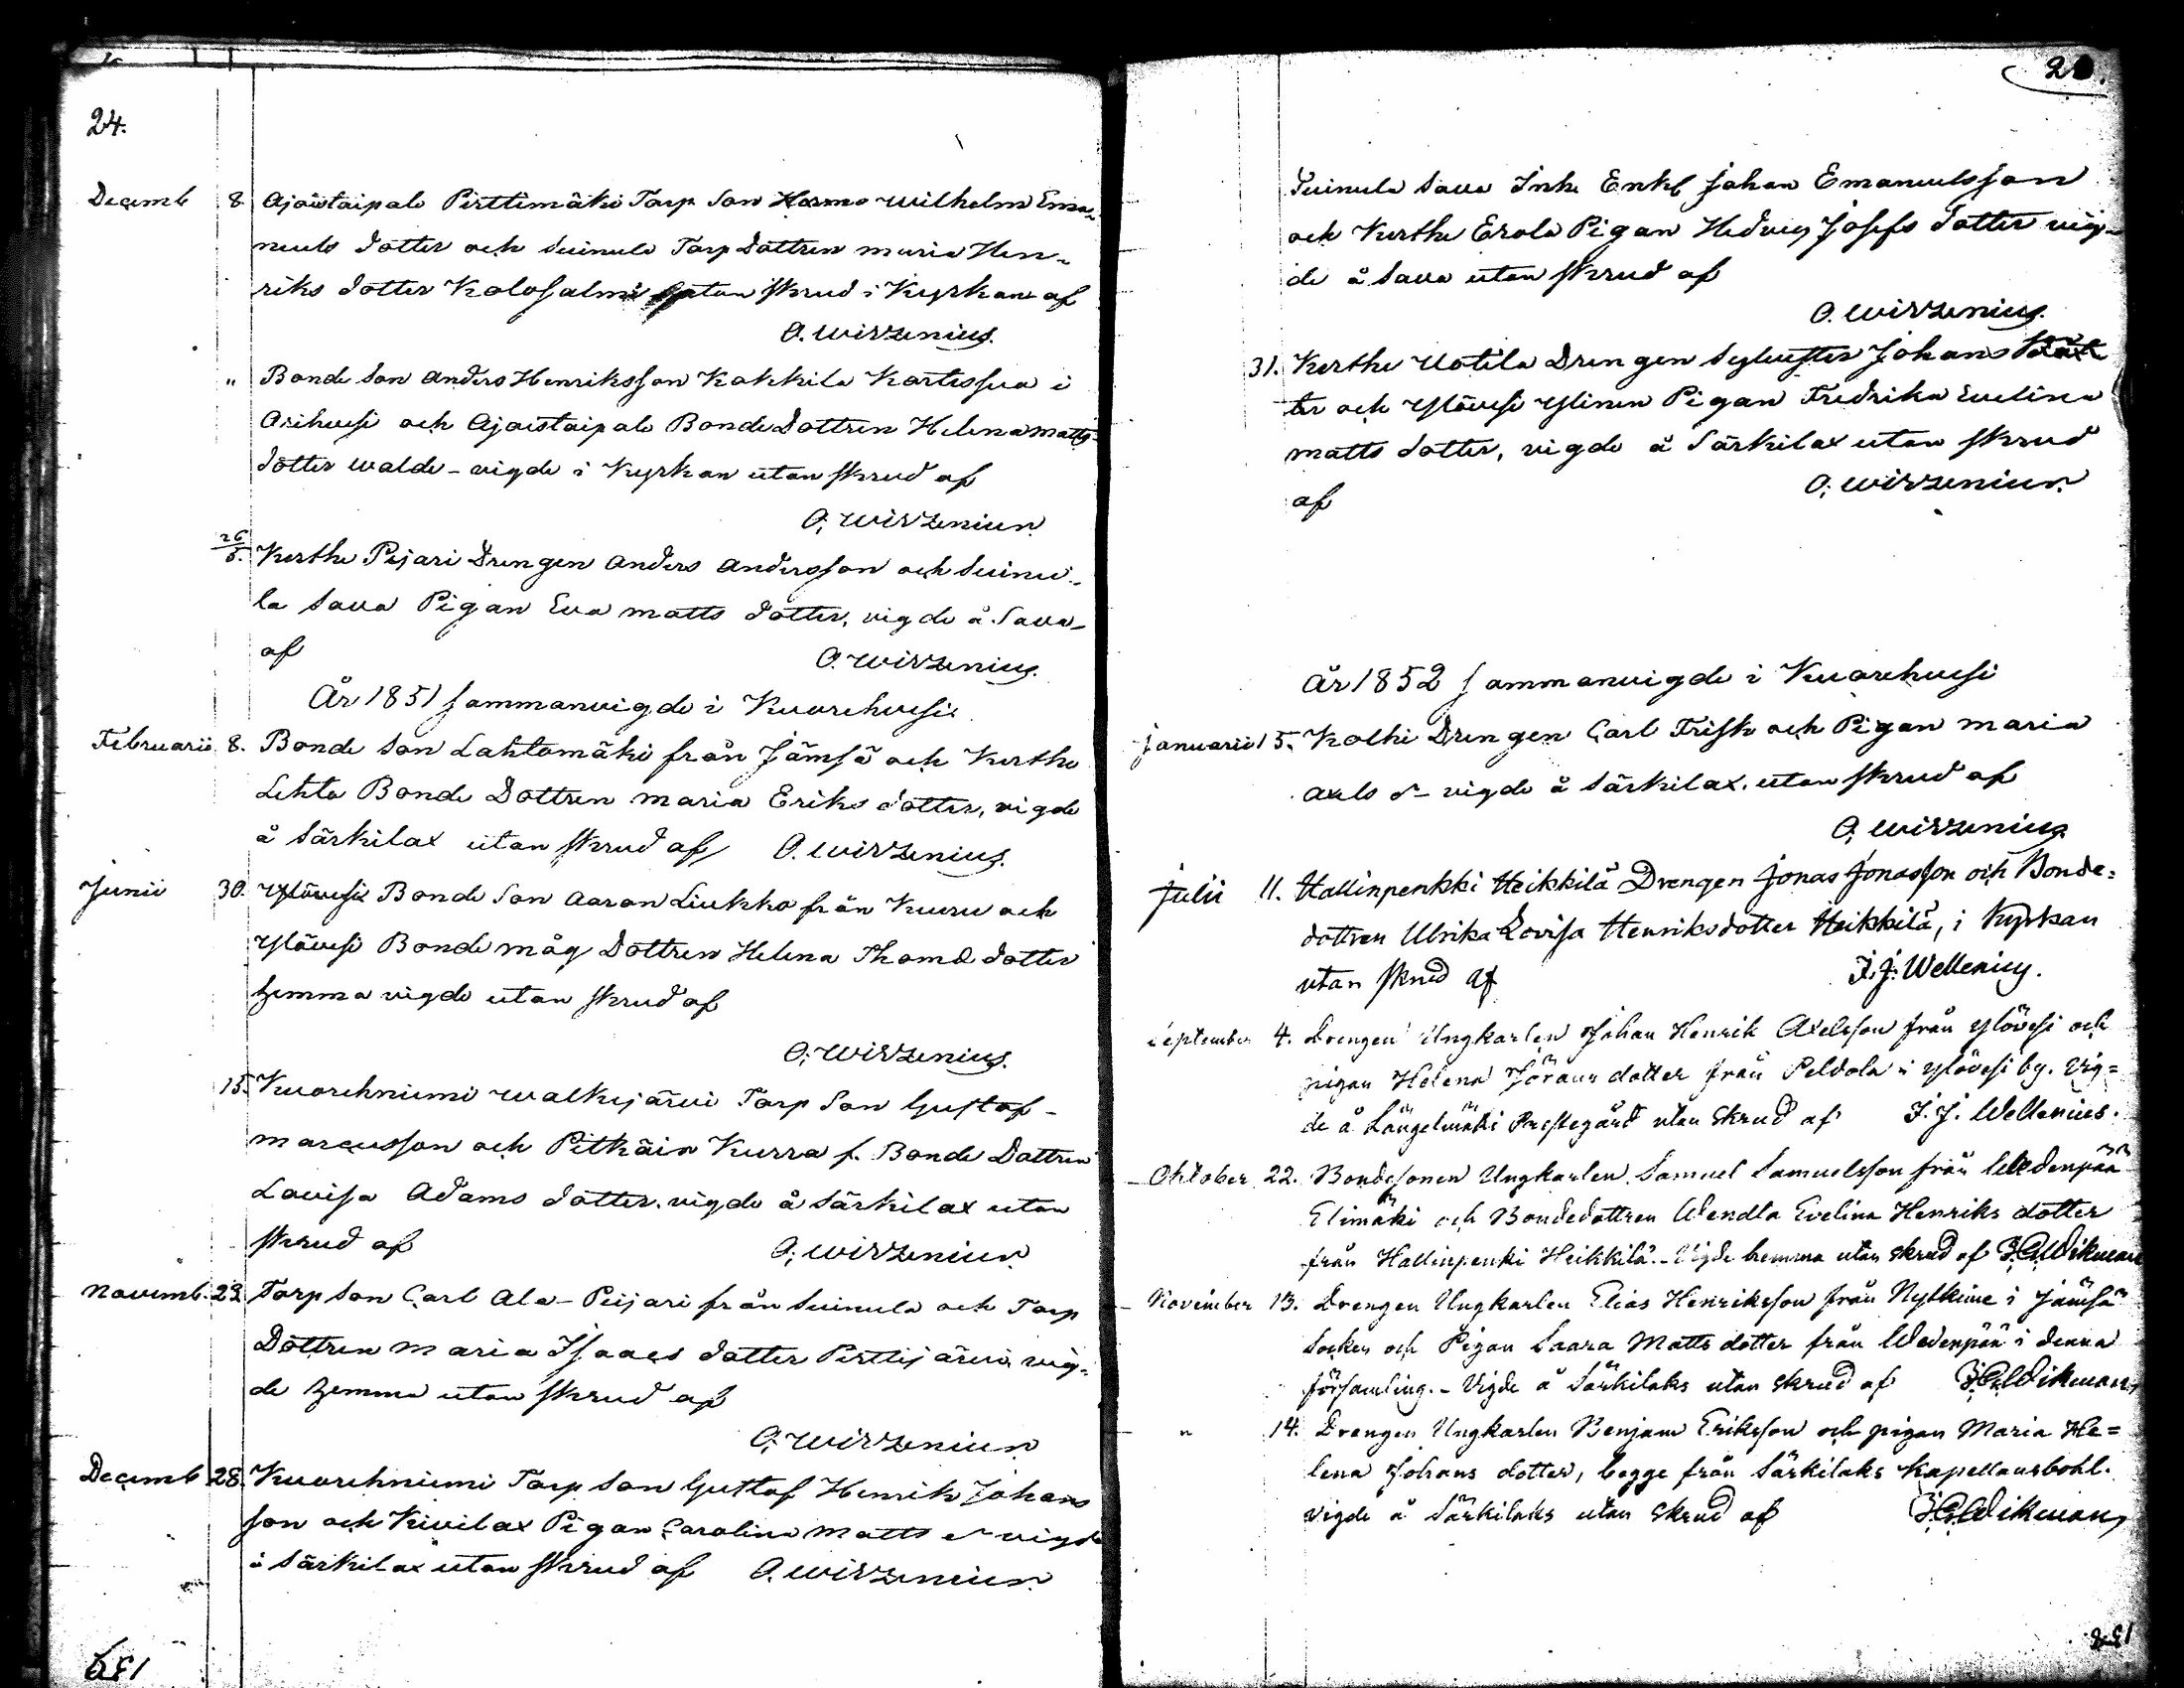 24.
Decemb 8. Ajostaipale Pirttimäki Torp Son Hermo Wilhelm Ema-
nuels dotter och Suinula Torp Dottren Maria Hen-
riks dotter Kolosalmi utan skrud i Kyrkan af
O. Wirzenius.
" Bonde Son Anders Henriksson Kakkila Kartessua i
Arihvesi och Ajostaipale Bonde Dottren Helena Matts
dotter Walde - vigde i Kyrkan utan skrud af
O. Wirzenius
26 Kerthe Pejari Drengen Anders Andersson och Suinu-
la Sava Pigan Eva Matts dotter, vigde å Sava
af O. Wirzenius.
År 1851 Sammanvigde i Kuorehvesi
Februarii 8. Bonde Son Lahtomäki från Jämsä och Kerthe
Lehto Bonde Dottren Maria Eriks dotter, vigde
å Särkilax utan skrud af O. Wirzenius.
Junii 30. Ylövesi Bonde Son Aaron Liukko från Kuru och
Ylövesi Bonde måg Dottren Helena Thomæ dotter
hemma vigde utan skrud af
O. Wirzenius.
15. Kuorehniemi Walkejärvi Torp Son Gustaf
Marcusson och Pitkäin Kurra f. Bonde Dottren
Lovisa Adams dotter. vigde å Särkilax utan
skrud af O. Wirzenius
Novemb. 23. Torp Son Carl Ala-Peijari från Suinula och Torp
Dottren Maria Isaacs dotter Perttijärvi vig-
de hemma utan skrud af
O. Wirzenius
Decemb 28. Kuorehniemi Torp Son Gustaf Henrik Johans
son och Kivilax Pigan Carolina Matts dr vigde
å Särkilax utan skrud af O. Wirzenius
Suinula Sava Inh. Enkl Johan Emanuelsson
och Kerthe Erola Pigan Hedvig Josefs dotter vig-
de å Sava utan skrud af
O. Wirzenius.
31. Kerthe Uotila Drengen Sylvester Johans
ter och Ylövesi Ylinen Pigan Fredrika Evelina
Matts dotter, vigde å Särkilax utan skrud
af O. Wirzenius
År 1852 Sammanvigde i Kuorehvesi
Januarii 15. Kolhi Drengen Carl Frisk och Pigan Maria
Axels dr vigde å Särkilax. utan skrud af
O. Wirzenius
Julii 11. Hallinpenkki Heikkilä Drengen Jonas Jonasson och Bonde=
dottren Ulrika Lovisa Henriksdotter Heikkilä, i Kyrkan
utan skrud af J. J. Wellenius.
September 4. Drengen Ungkarlen Johan Henrik Axelsson från Ylövesi och
pigan Helena Jörans dotter från Peldola i Ylövesi by. Vig=
de å Längelmäki Prestegård utan skrud af J. J. Wellenius.
Oktober 22. Bondesonen Ungkarlen Samuel Samuelsson från Wedenpää
Elimäki och Bondedottren Wendla Evelina Henriks dotter
från Hallinpenki Heikkilä. - Vigde hemma utan skrud af Wikman
November 13. Drengen Ungkarlen Elias Henriksson från Nytkime i Jämsä
Socken och Pigan Saara Matts dotter från Wedenpää i denna
församling. - Vigde å Särkilaks utan skrud af Wikman
" 14. Drengen Ungkarlen Benjam Eriksson och pigan Maria He=
lena Johans dotter, begge från Särkilaks Kapellansbohl.
Vigde å Särkilaks utan skrud af Wikman